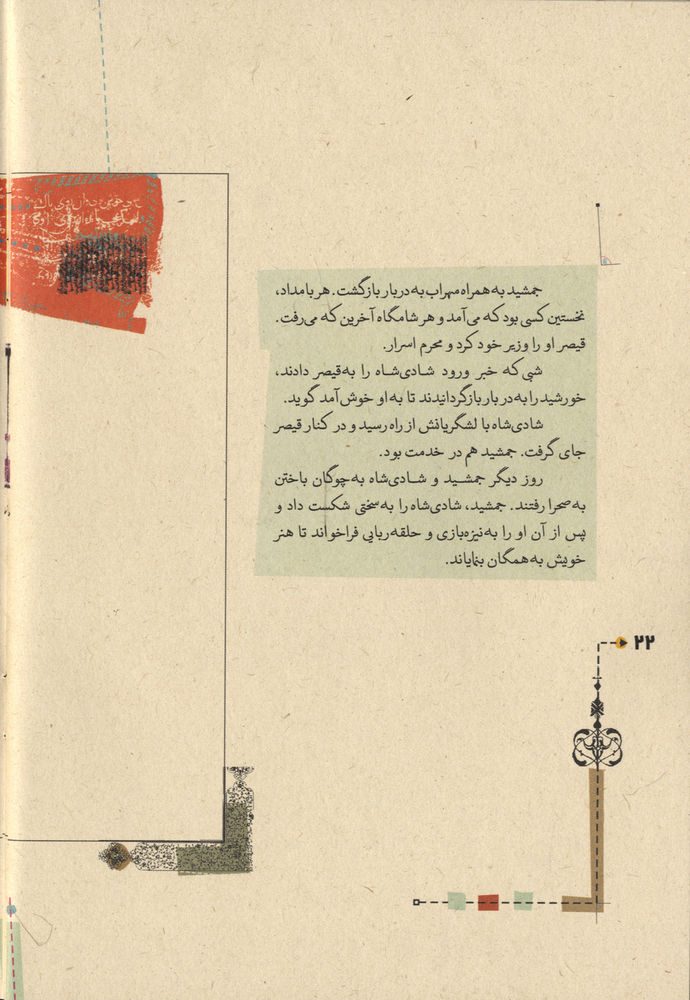 جمشید به همراه مهراب به دربار بازگشت. هر بامداد،
نخستین کسی بود که می‌آمد و هر شامگاه آخرین که می‌رفت.
قیصر او را وزیر خود کرد و محرم اسرار.
شبی که خبر ورود شادی‌شاه را به قیصر دادند،
خورشید را به دربار بازگردانیدند تا به او خوش‌آمد گوید.
شادی‌شاه با لشگریانش از راه رسید و در کنار قیصر
جای گرفت. جمشید هم در خدمت بود.
روز دیگر جمشید و شادی‌شاه به چوگان باختن
به صحرا رفتند. جمشید، شادی‌شاه را به سختی شکست داد و
پس از آن او را به نیزه‌بازی و حلقه‌ربایی فراخواند تا هنر
خویش به همگان بنمایاند.
۲۲